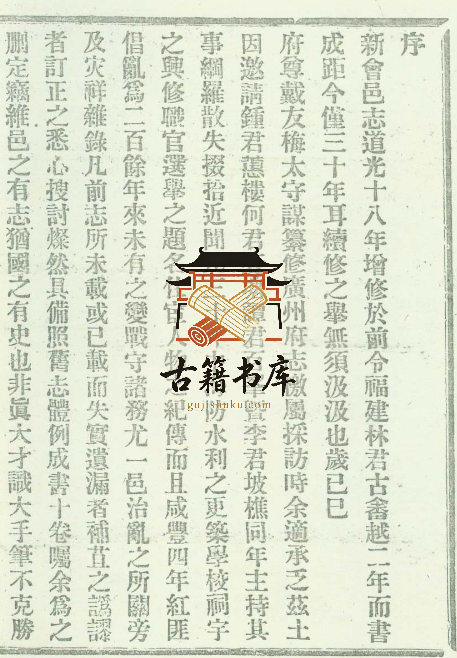 序
新會邑志道光十八年增修於前令福建林君古畬越二年而書
成距今僅三十年耳續修之舉無須汲汲也歲己巳
府尊戴友梅太守謀纂修廣州府志檄屬採訪時余適承乏茲土
因邀請鍾君蕙樓何君譚君李君坡樵同年主持其
事網羅散失掇拾近聞防水利之更築學校祠宇
之興修職官選舉之題名宦人紀傳而且咸豐四年紅匪
倡亂爲二百餘年來未有之變戰守諸務尤一邑治亂之所關旁
及灾祥雜錄凡前志所未載或已載而失實遺漏者補苴之譌謬
者訂正之悉心搜討燦然具備照舊志體例成書十卷囑余爲之
刪定竊維邑之有志猶國之有史也非眞大才識大手筆不克勝
古籍书库
gujishuku.com